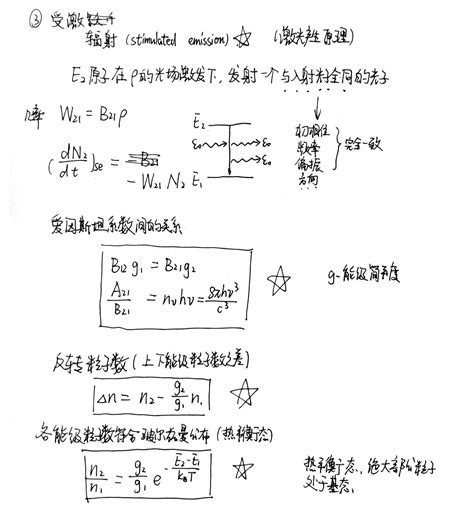 ③ 受激
辐射 (stimulated emission) ☆ (激光产生原理)
E₂原子在ρ的光场激发下，发射一个与入射光子全同的光子
W₂₁ = B₂₁ρ
(dN₂/dt)se = - W₂₁ N₂
E₂
ε₀ ε₀
ε₀
E₁
初相位
频率
偏振
方向
完全一致
爱因斯坦系数间的关系
B₁₂ g₁ = B₂₁ g₂
A₂₁/B₂₁ = nᵥhν = 8πhν³/c³
☆ g-能级简并度
反转粒子数 (上下能级粒子数之差)
Δn = n₂ - g₂/g₁ n₁ ☆
各能级粒子数符合玻尔兹曼分布 (热平衡态)
n₂/n₁ = g₂/g₁ e^(-(E₂-E₁)/(k_BT)) ☆
热平衡态，绝大部分粒子
处于基态.